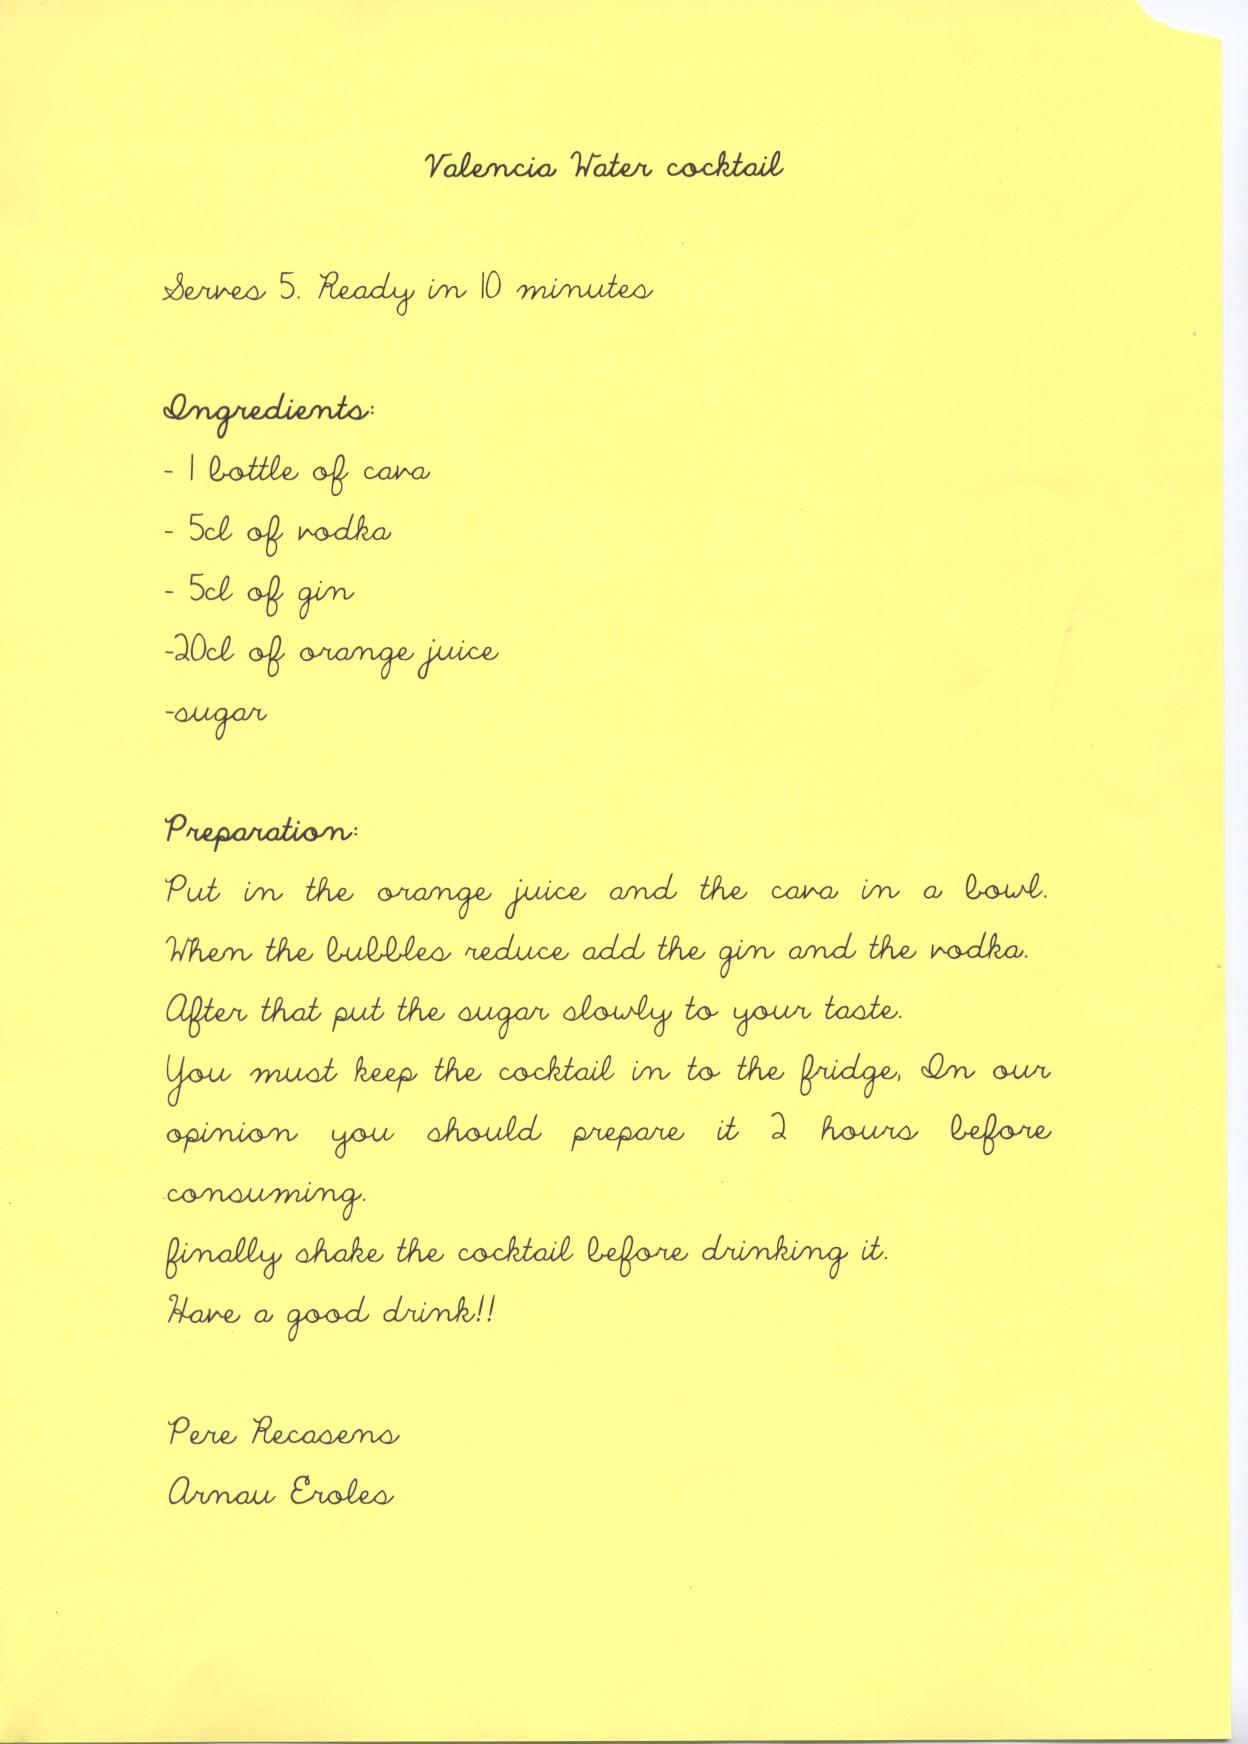 Valencia Water cocktail
Serves 5. Ready in 10 minutes
Ingredients:
- 1 bottle of cava
- 5cl of vodka
- 5cl of gin
-20cl of orange juice
-sugar
Preparation:
Put in the orange juice and the cava in a bowl.
When the bubbles reduce add the gin and the vodka.
After that put the sugar slowly to your taste.
You must keep the cocktail in to the fridge, In our
opinion you should prepare it 2 hours before
consuming.
finally shake the cocktail before drinking it.
Have a good drink!!
Pere Recasens
Arnau Eroles